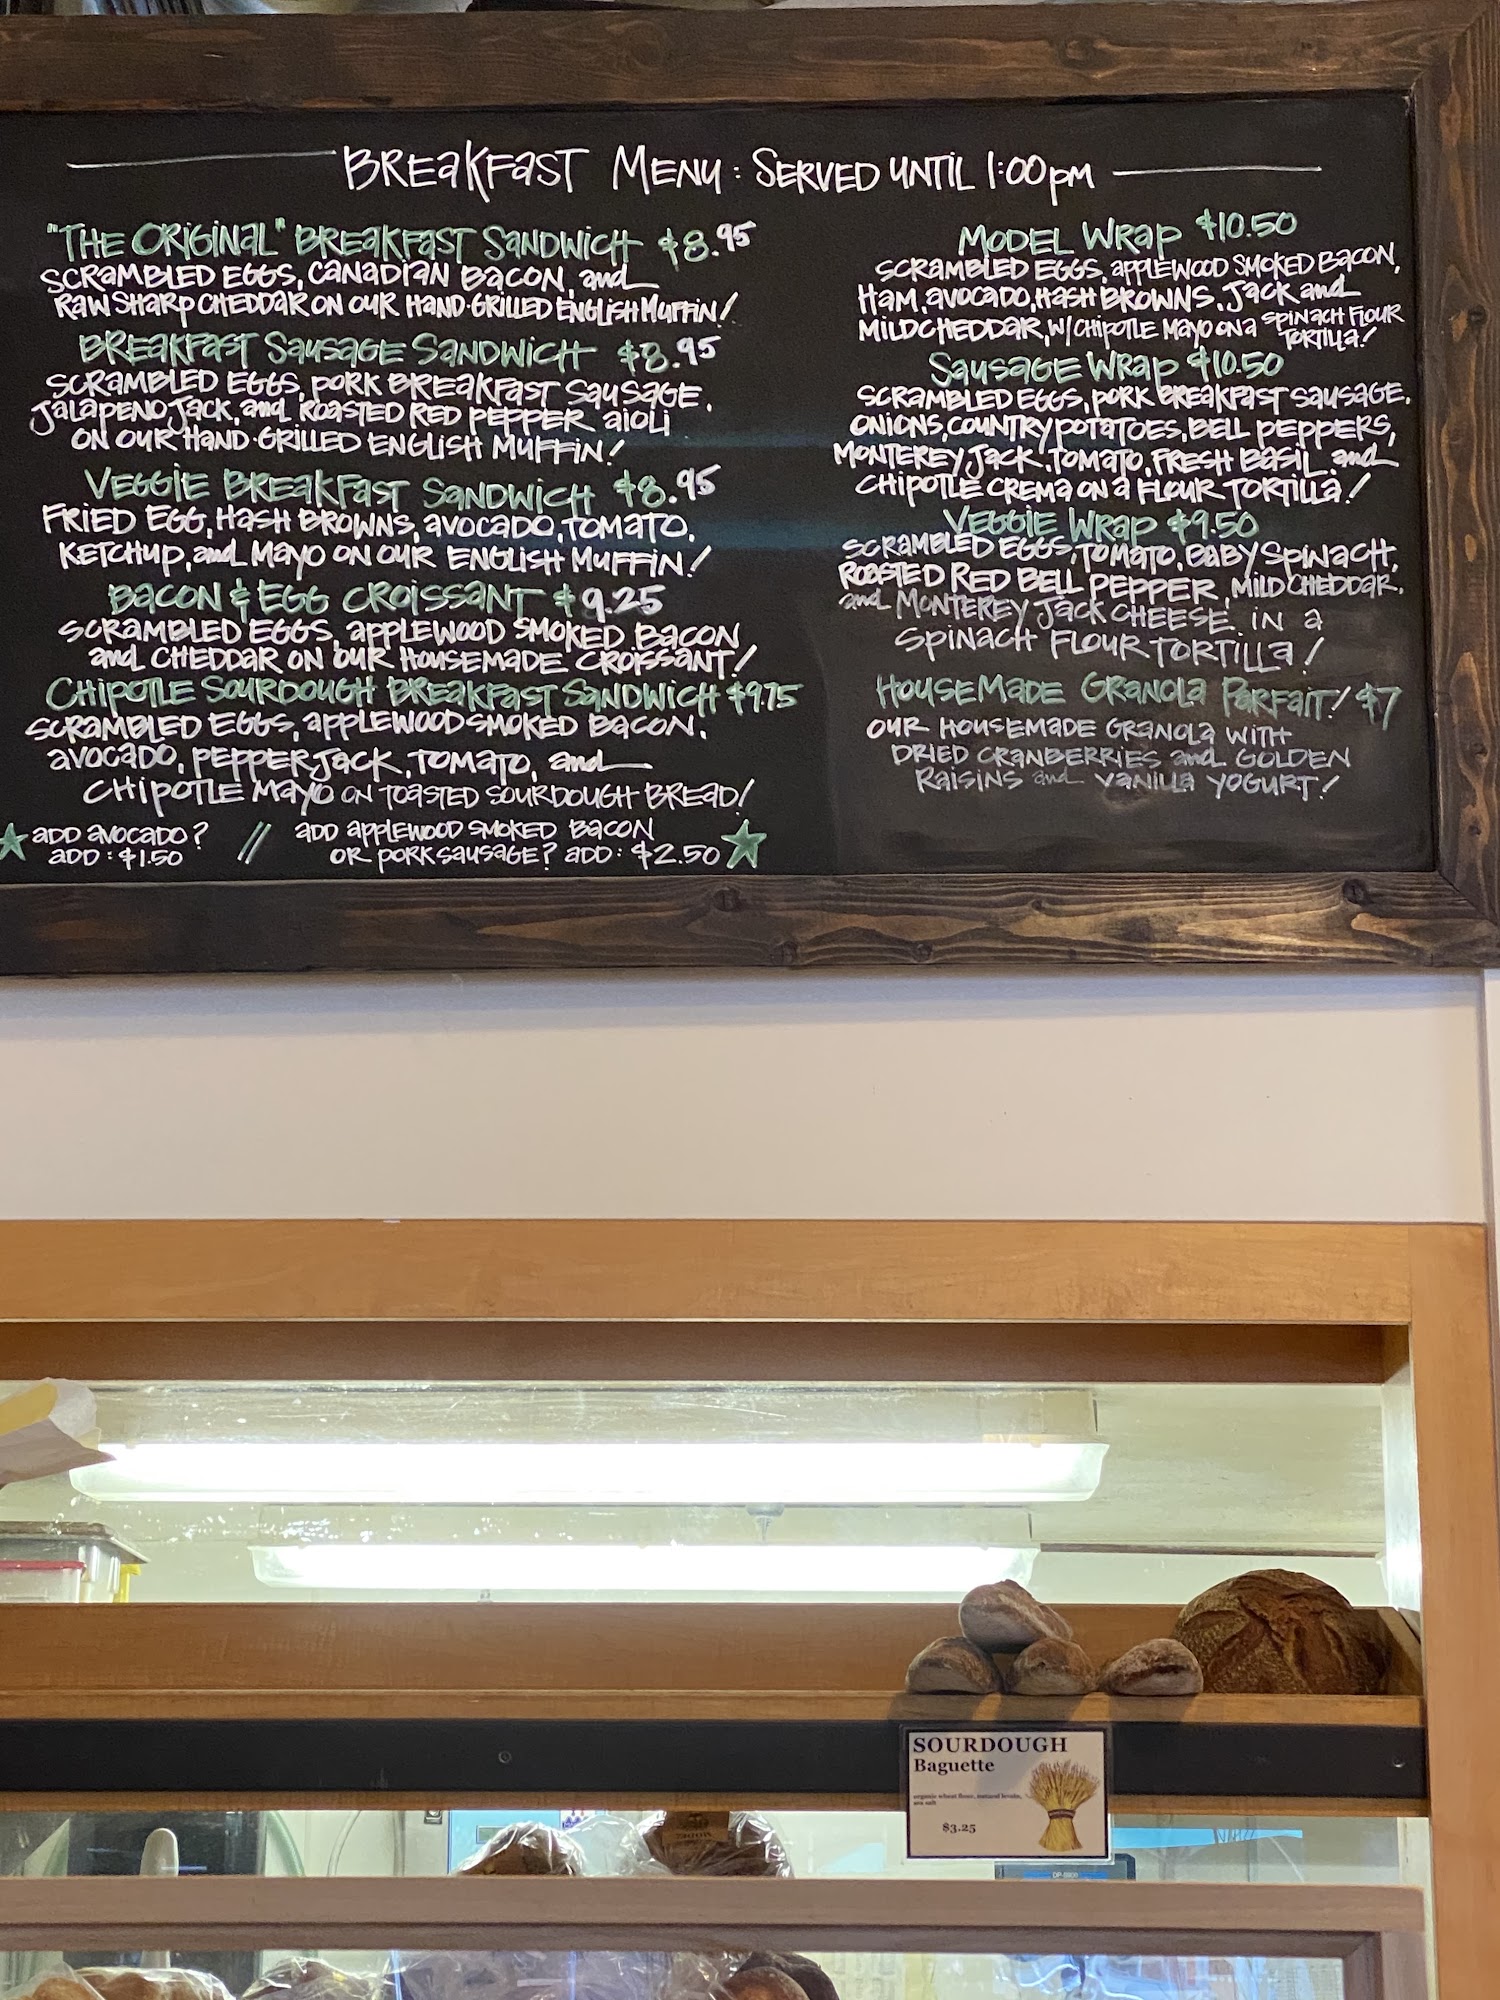 BREAKFAST MENU: SERVED UNTIL 1:00pm
"THE ORIGINAL" BREAKFAST SANDWICH $8.95
SCRAMBLED EGGS, CANADIAN BACON, and
RAW SHARP CHEDDAR ON OUR HAND-GRILLED ENGLISH MUFFIN!
BREAKFAST SAUSAGE SANDWICH $8.95
SCRAMBLED EGGS, PORK BREAKFAST SAUSAGE,
JALAPENO JACK, and ROASTED RED PEPPER AIOLI
ON OUR HAND-GRILLED ENGLISH MUFFIN!
VEGGIE BREAKFAST SANDWICH $8.95
FRIED EGG, HASH BROWNS, AVOCADO, TOMATO,
KETCHUP, and MAYO ON OUR ENGLISH MUFFIN!
BACON & EGG CROISSANT $9.25
SCRAMBLED EGGS, APPLEWOOD SMOKED BACON
and CHEDDAR ON OUR HOUSEMADE CROISSANT!
CHIPOTLE SOURDOUGH BREAKFAST SANDWICH $9.75
SCRAMBLED EGGS, APPLEWOOD SMOKED BACON,
AVOCADO, PEPPER JACK, TOMATO, and
CHIPOTLE MAYO ON TOASTED SOURDOUGH BREAD!
ADD AVOCADO? // ADD APPLEWOOD SMOKED BACON
ADD: $1.50 OR PORK SAUSAGE? ADD: $2.50
MODEL WRAP $10.50
SCRAMBLED EGGS, APPLEWOOD SMOKED BACON,
HAM, AVOCADO, HASH BROWNS, JACK and
MILD CHEDDAR, W/ CHIPOTLE MAYO ON A SPINACH FLOUR
TORTILLA!
SAUSAGE WRAP $10.50
SCRAMBLED EGGS, PORK BREAKFAST SAUSAGE,
ONIONS, COUNTRY POTATOES, BELL PEPPERS,
MONTEREY JACK, TOMATO, FRESH BASIL, and
CHIPOTLE CREMA ON A FLOUR TORTILLA!
VEGGIE WRAP $9.50
SCRAMBLED EGGS, TOMATO, BABY SPINACH,
ROASTED RED BELL PEPPER, MILD CHEDDAR,
and MONTEREY JACK CHEESE IN A
SPINACH FLOUR TORTILLA!
HOUSEMADE GRANOLA PARFAIT! $7
OUR HOUSEMADE GRANOLA WITH
DRIED CRANBERRIES and GOLDEN
RAISINS and VANILLA YOGURT!
SOURDOUGH
Baguette
organic wheat flour, natural levain,
sea salt
$3.25